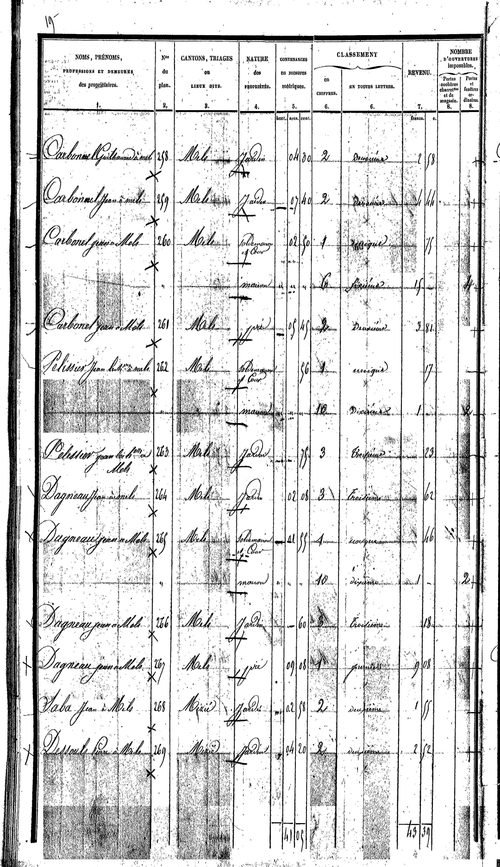 19
NOMS, PRÉNOMS, PROFESSIONS ET DEMEURES des propriétaires. | Nos du plan. | CANTONS, TRIAGES ou LIEUX DITS. | NATURE des PROPRIÉTÉS. | CONTENANCES EN MESURES métriques. | CLASSEMENT EN CHIFFRES. | EN TOUTES LETTRES. | REVENU. | NOMBRE D'OUVERTURES imposables. Portes cochères charretres et de magasin. | Portes et fenêtres ordinaires.
1. 2. 3. 4. 5. 6. 6. 7. 8. 8.
hect. ares. cent. francs. c.
Carbonnel Guillaume à Mels 258 Mels Jardin 04 30 2 Deuxième 2 58
Carbonnel Jean à Mels 259 Mels Jardin 07 40 2 Deuxième 4 44
Carbonel Jean à Mels 260 Mels Sol de maison et Cour 02 50 1 unique 75
" " maison " " " 6 sixième 15 - 4
Carbonel Jean à Mels 261 Mels pré 05 45 2 Deuxième 3 81
Pelissier Jean à Mels 262 Mels Sol de maison et Cour 56 1 unique 17
" maison " " 10 Dixième 1 - 2
Pelissier Jean à Mels 263 Mels Jardin 75 3 Troisième 23
Dagneau Jean à Mels 264 Mels Jardin 02 08 3 Troisième 62
Dagneau Jean à Mels 265 Mels Sol de maison et Cour 01 55 1 unique 46
" " maison 10 dixième 1 - 2
Dagneau Jean à Mels 266 Mels Jardin 60 3 Troisième 18
Dagneau Jean à Mels 267 Mels pré 09 08 1 première 9 08
Saba Jean à Mels 268 Jardin 02 58 2 deuxième 1 55
à Mels 269 Jardin 04 20 2 deuxième 2 52
41 05 43 39